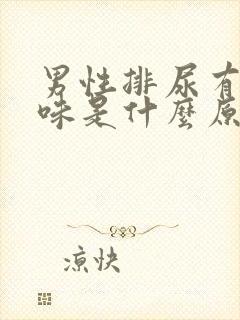 男性排尿有
味是什麼原
凉快